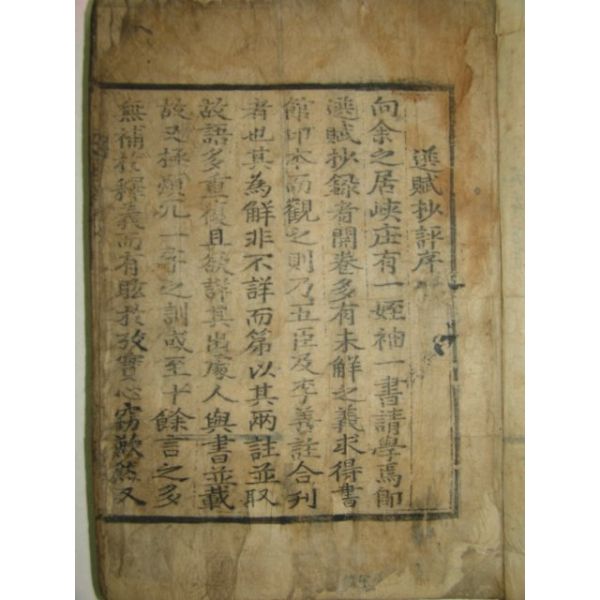 選賦抄評序
向余之居峽庄有一姪袖一書請學焉卽
選賦抄錄者開卷多有未解之義求得書
館印本而觀之則乃五臣及李善註合刊
者也其為解非不詳而第以其兩註並取
故語多重復且欲詳其出處人與書並載
故又極煩冗一字之訓或至十餘言之多
無補於釋義而有眩於攷實心竊歎然又